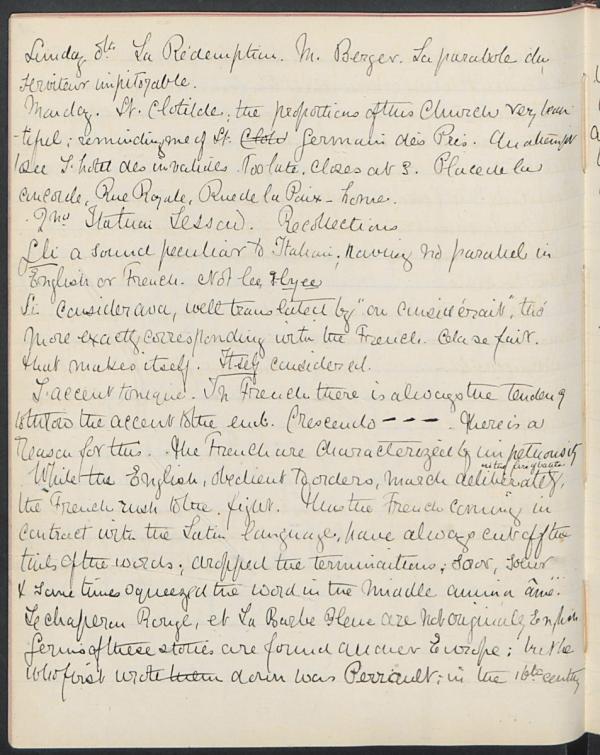 Sunday 8th. La Rédemption. M. Berger. La parabole du
serviteur impitoyable.
Monday. St. Clotilde; the proportions of this Church very beau
-tiful; reminding me of St. Germain des Prés. An attempt
to see L'hotel des invalides. Too late. Closes at 3. Place de la
concorde, Rue Royale, Rue de la Paix - home.
2nd Italian Lesson. Recollections
Gli a sound peculiar to Italian, having no parallel in
English or French. Not lee, + lyee
Si considerava, well translated by "on considérait", tho'
more exactly corresponding with the French. Cela se fait.
that makes itself. Itself considered.
L'accent tonique. In French there is always the tendency
to throw the accent to the end. Crescendo - - - . There is a
reason for this. The French are characterized by impetuosity
While the English, obedient to orders, march deliberately,
the French rush to the fight. Thus the French coming in
contact with the Latin language, have always cut off the
tails of the words; dropped the terminations; soror, soeur
& sometimes squeezed the word in the middle anima âme.
Le chaperon Rouge, et La Barbe Bleue are not originally English
Germs of these stories are found all over Europe; but he
who first wrote them down was Perrault; in the 16th century